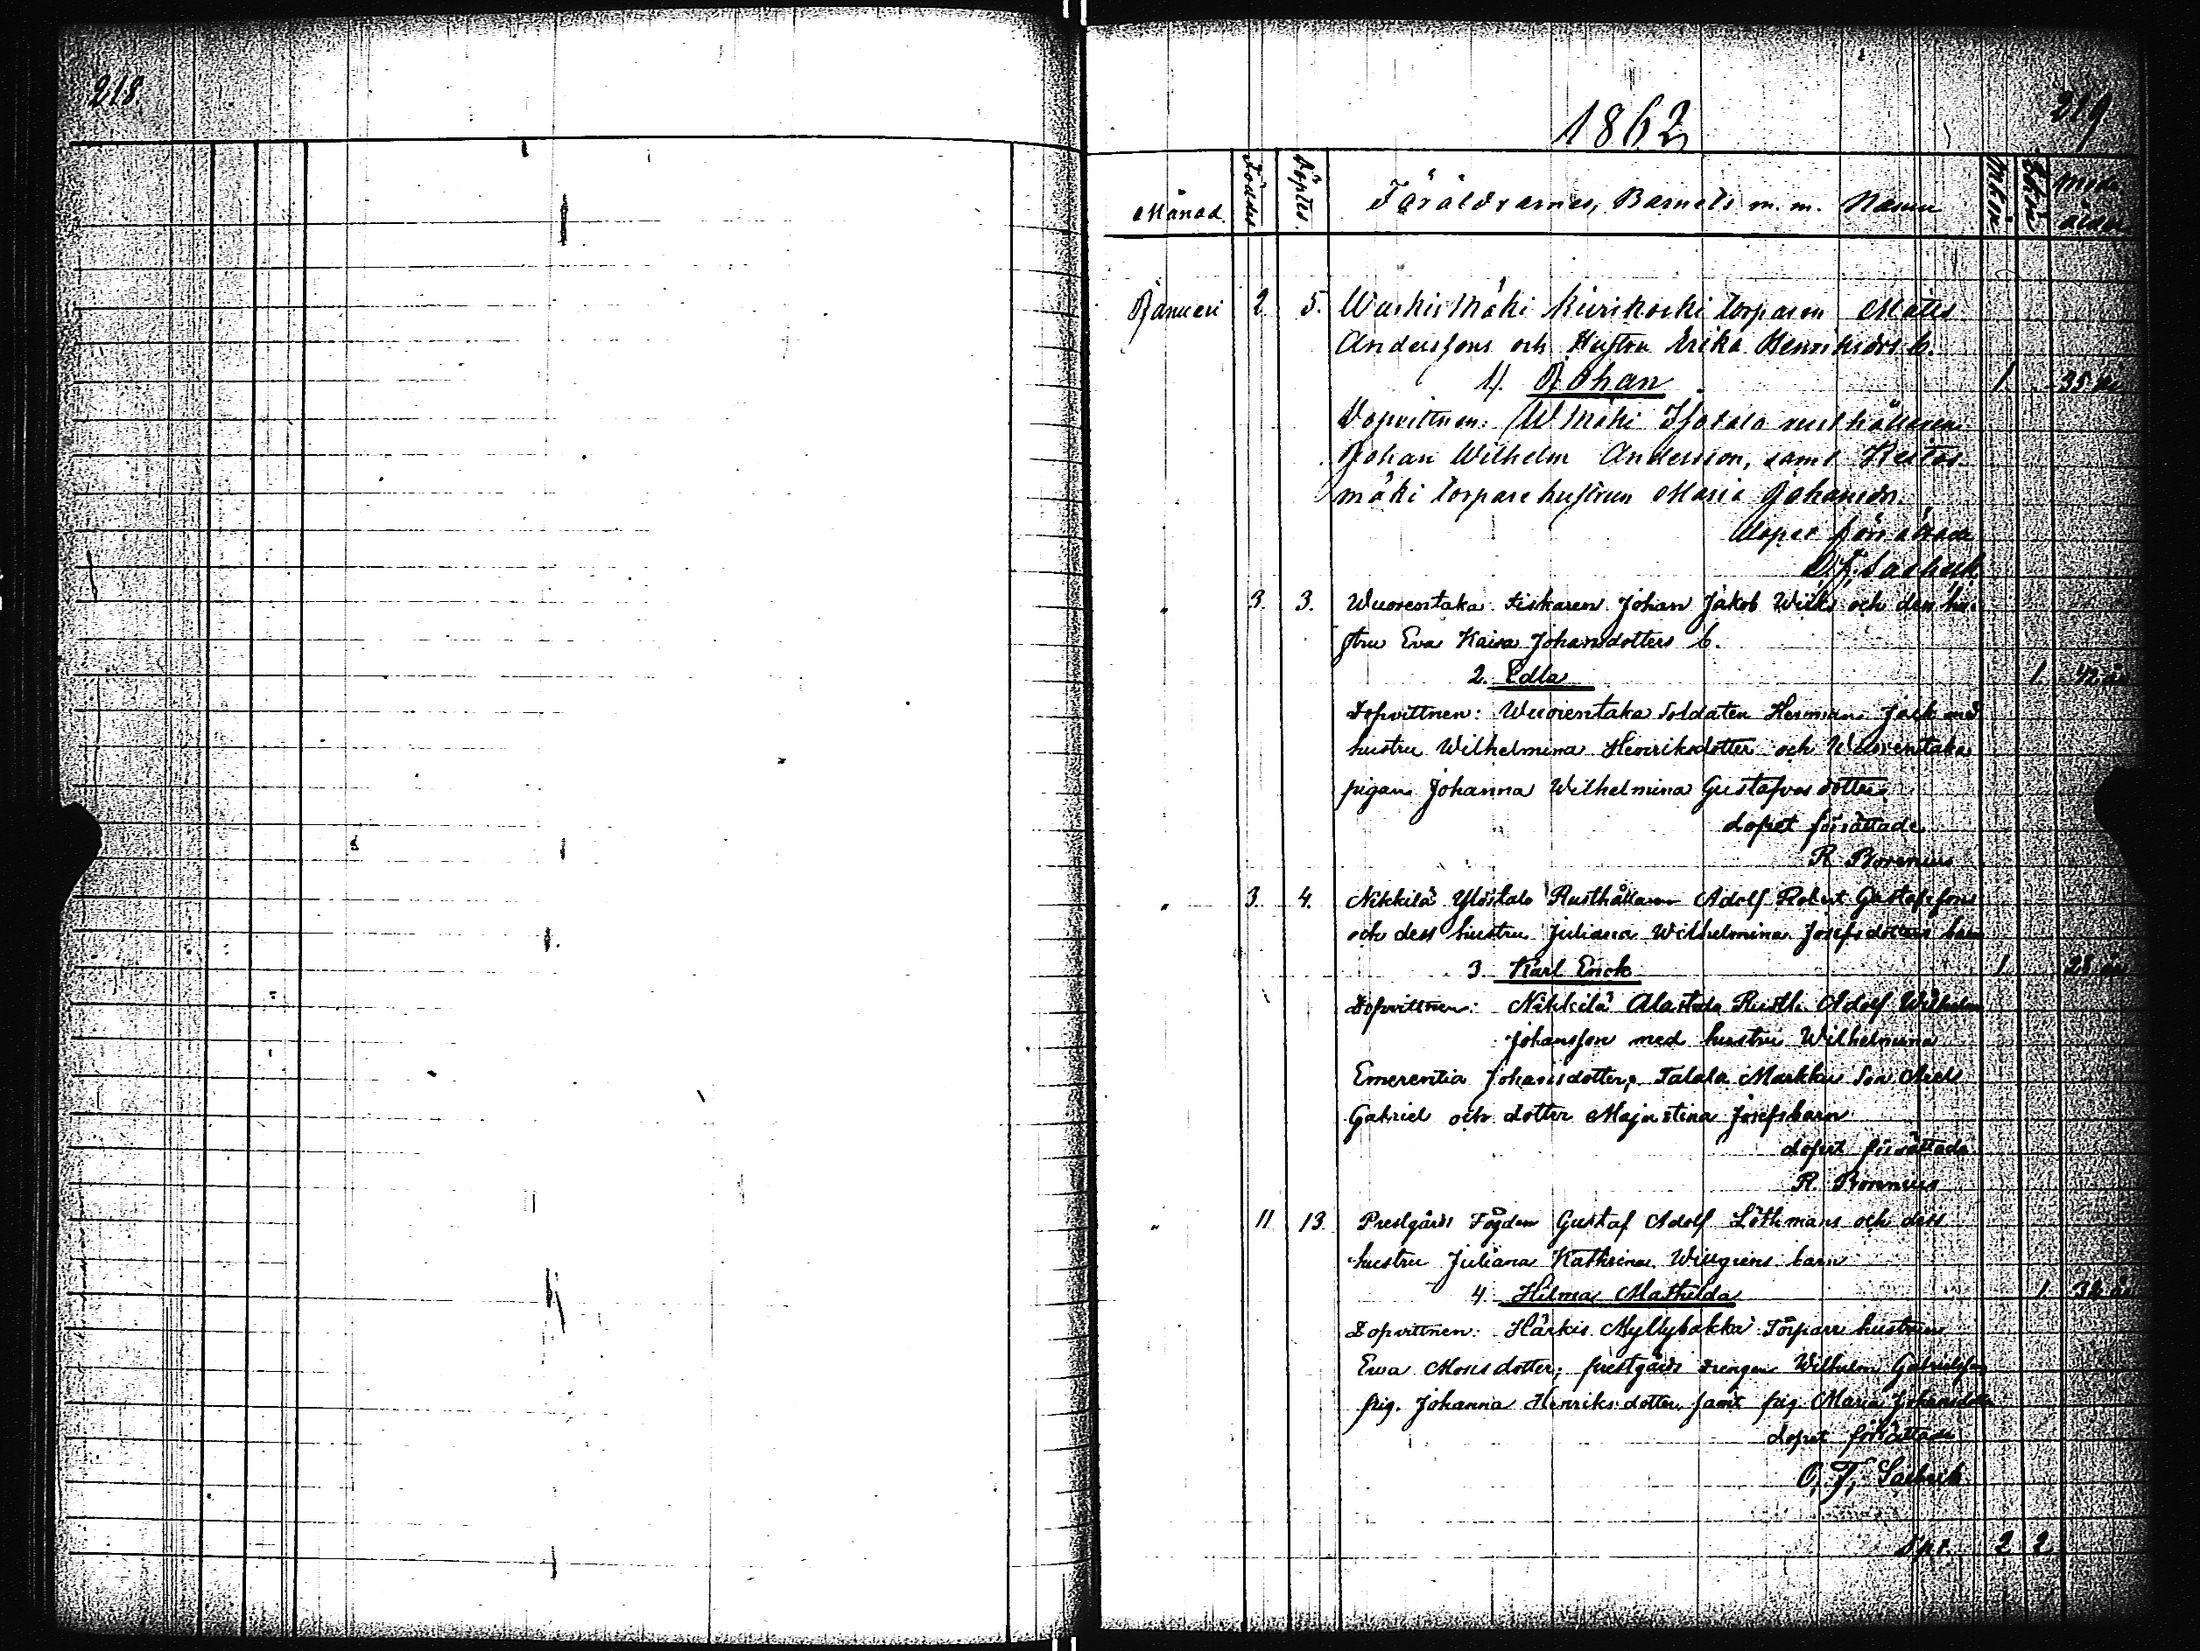 218.
219
1862
Månad Föddes Döptes. Föräldrarnes, Barnets m. m. Namn M.kön Q.kön
Januari 2. 5. Waskismäki Kurikoski torparen Matts
Anderssons och Hustru Erika Henriksdrs b.
1). Johan 1. 35 år
Dopvittnen: W mäki Isotalo rusthållaren
Johan Wilhelm Andersson, samt Keitos
mäki torparehustrun Maria Johansdr.
dopet förrättade
" 3. 3. Wuorentaka Fiskaren Johan Jakob Wiiks och dess hu-
stru Eva Kaisa Johansdotters b.
2. Edla 1. 42 år
Dopvittnen: Wuorentaka Soldaten Herman Jack med
hustru Wilhelmina Henriksdotter och Wuorentaka
pigan Johanna Wilhelmina Gustafsdotter
dopet förrättade
R Borenius
" 3. 4. Nikkilä Ylöstalo Rusthållaren Adolf Robert Gustafssons
och dess hustru Juliana Wilhelmina Josefsdotters barn
3. Karl Erick 1. 28 år
Dopvittnen: Nikkilä Alastalo Rusth. Adolf Wilhelm
Johansson med hustru Wilhelmina
Emerentia Johansdotter, Talala Markku Son Axel
Gabriel och dotter Maja Stina Josefsbarn
dopet förrättade
R. Borenius
" 11 13. Prestgårds Fogden Gustaf Adolf Löthmans och dess
hustru Juliana Kathrina Willgrens barn
4. Hilma Mathilda 1. år
Dopvittnen: Härkis Myllybakka Torpare hustrun
Ewa Mosisdotter, prestgårds drengen Wilhelm Gabrielsson
pig. Johanna Henriksdotter, samt pig. Maria Johansdotter
dopet förrättade
O. F.
Spr. 2 2